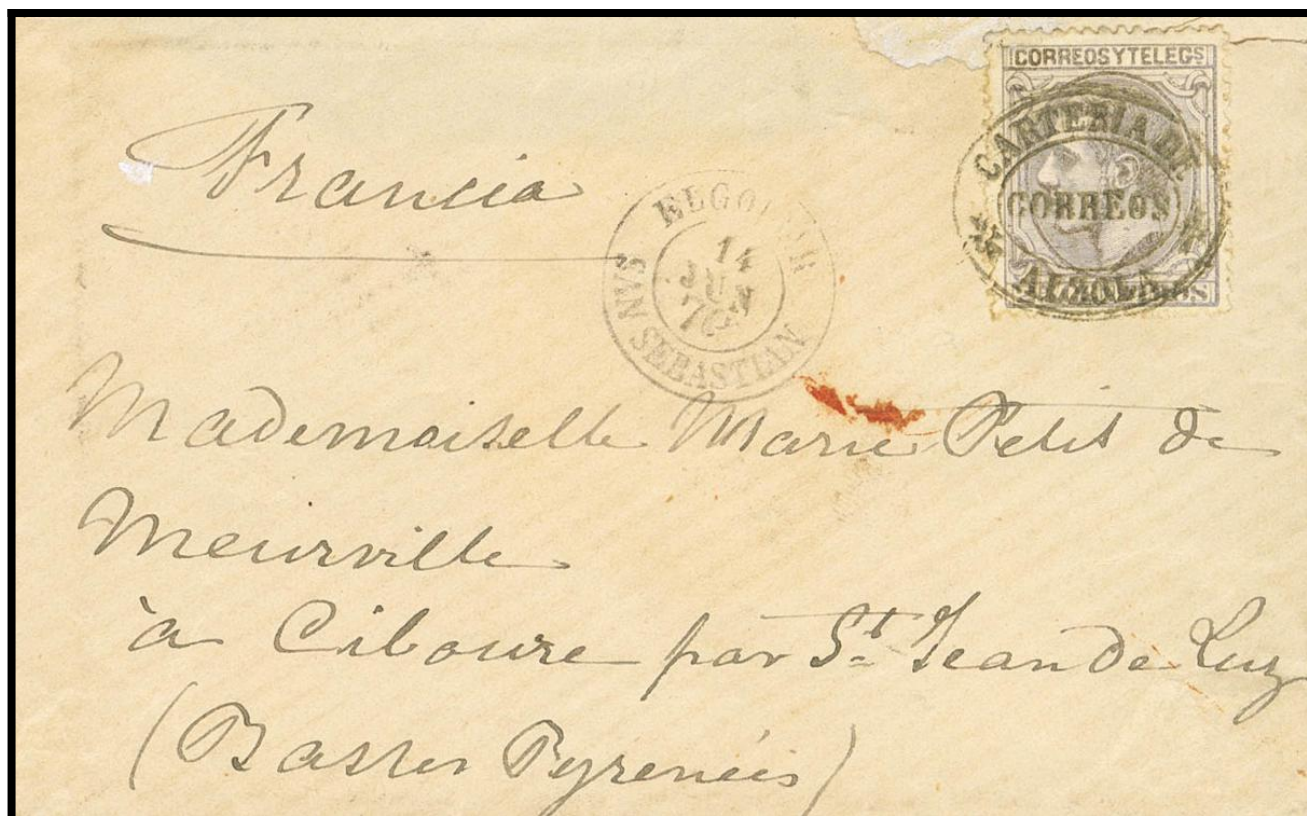 CORREOS Y TELEGS
CARTERIA DE
CORREOS
ALZOLA
Francia
ELGOIBAR
14
JUN
SAN SEBASTIAN
Mademoiselle Marie Petit de
Meurville
à Ciboure par St Jean de Luz
(Basses Pyrenéis)